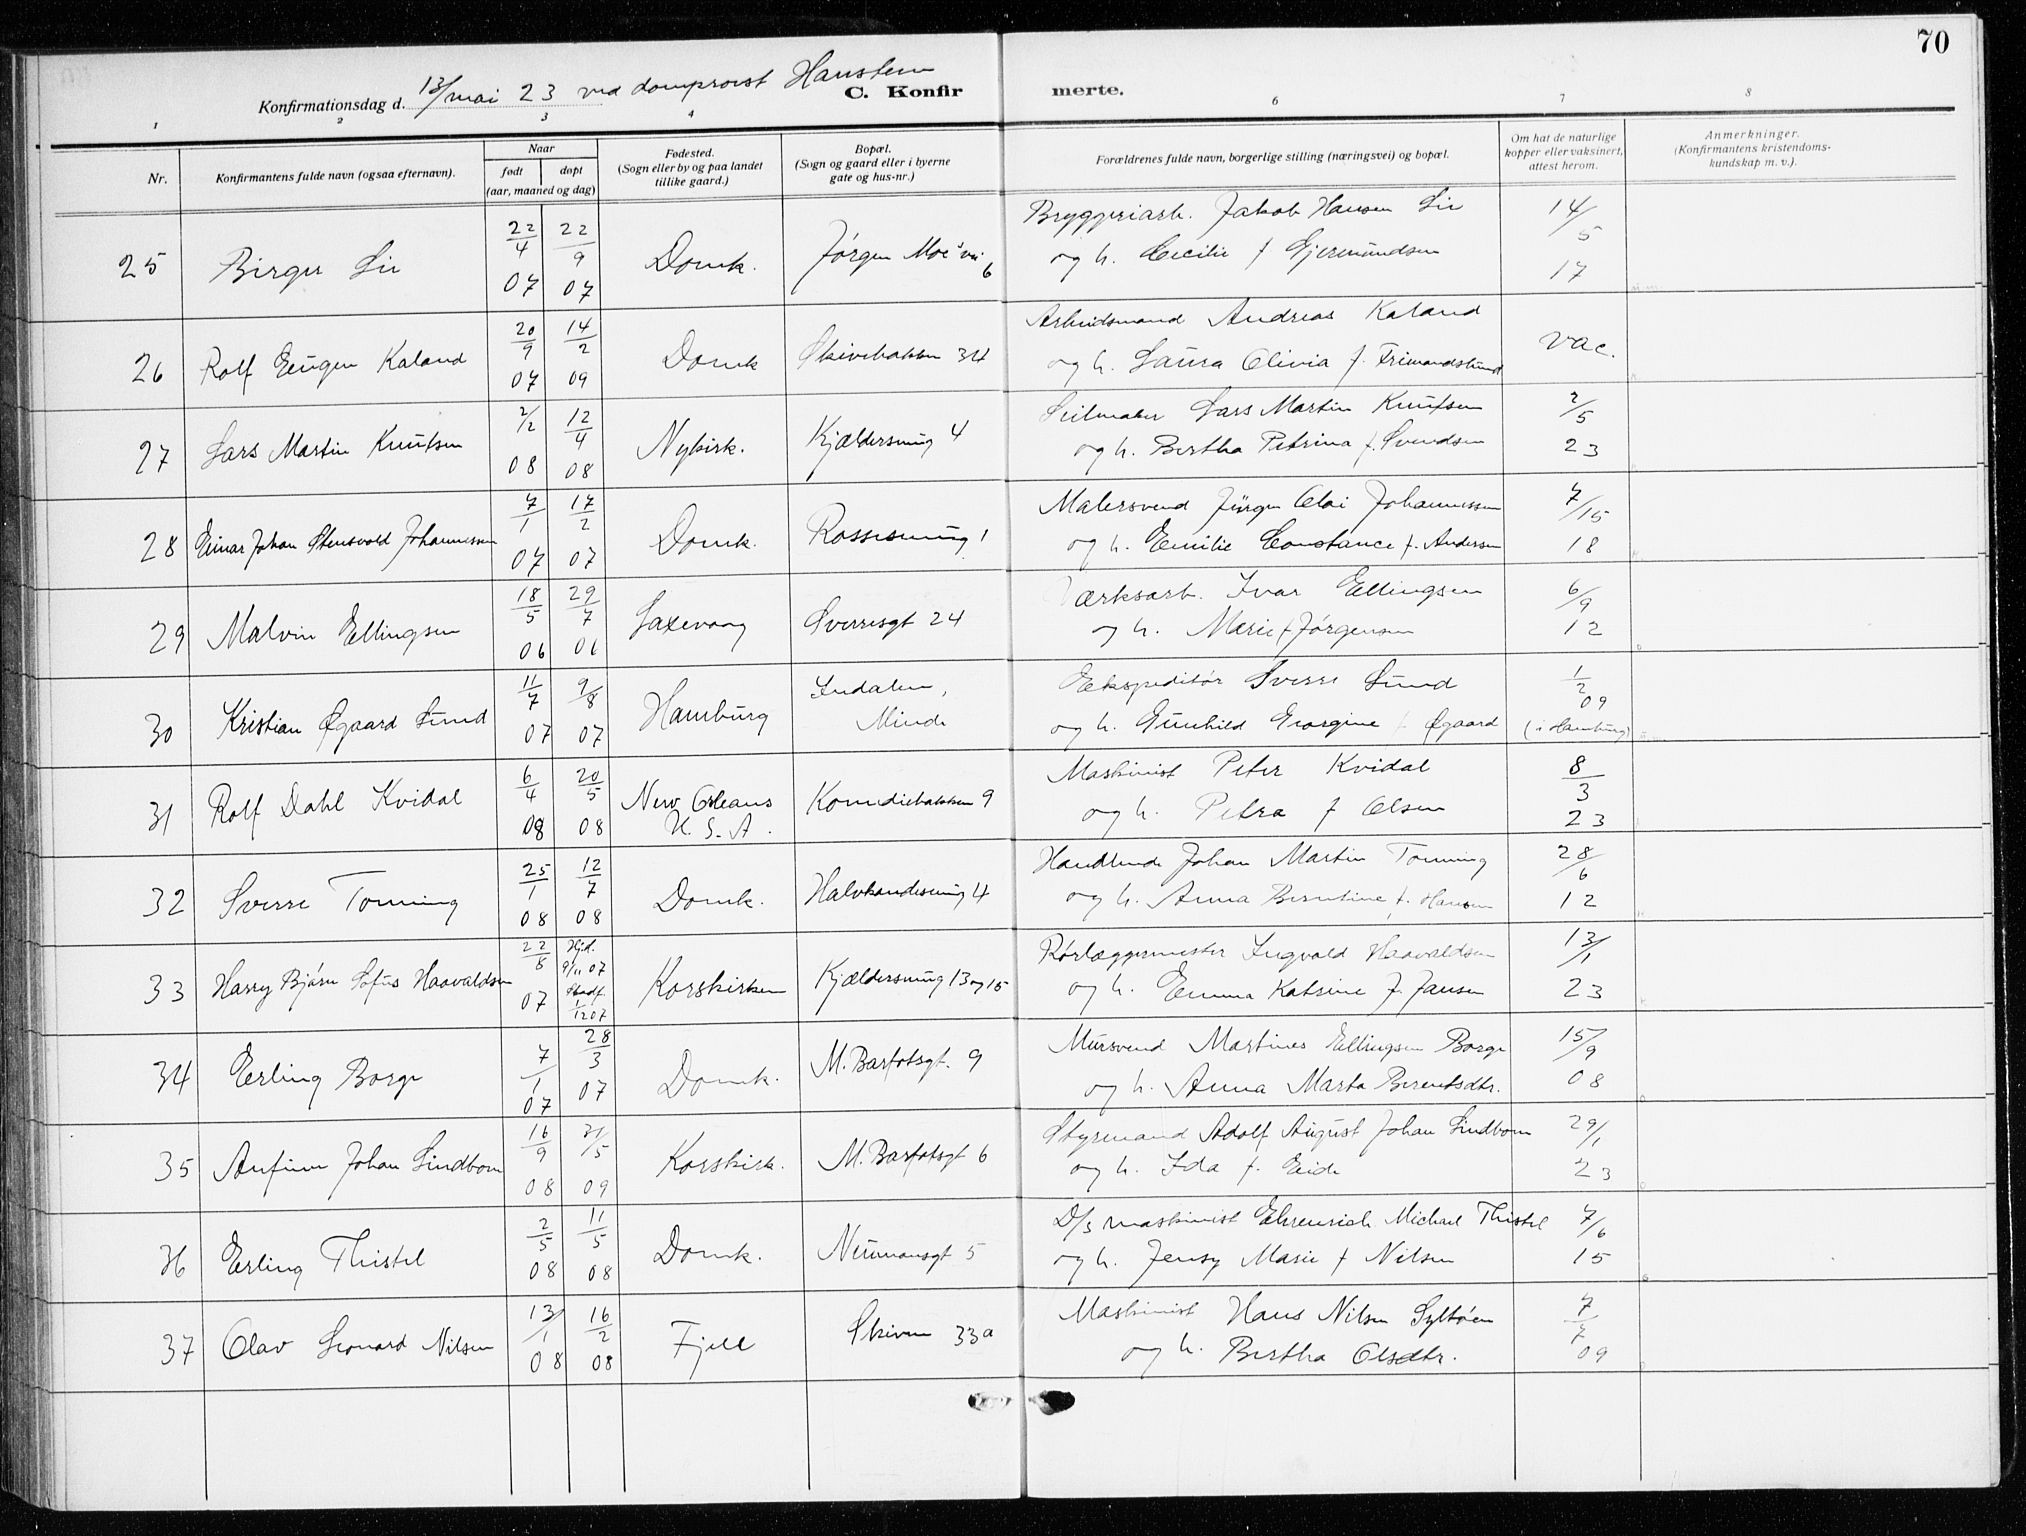 70
Konfirmationsdag d. 13/mai 23 ved domprovst Hanstein
C. Konfirmerte.
1 2 3 4 6 7 8
Nr.
Konfirmantens fulde navn (ogsaa efternavn).
Naar
født døpt
(aar, maaned og dag)
Fødested.
(Sogn eller by og paa landet
tillike gaard.)
Bopæl.
(Sogn og gaard eller i byerne
gate og hus-nr.)
Forældrenes fulde navn, borgerlige stilling (næringsvei) og bopæl.
Om hat de naturlige
kopper eller vaksinert,
attest herom.
Anmerkninger.
(Konfirmantens kristendoms-
kundskap m. v.).
25 Birger Lie 22/4 07 22/9 07 Domk. Jørgen Moe's vei 6
Bryggeriarb. Jakob Hansen Lie
og h. Cecilie f Gjermundsen
14/5 17
26 Rolf Eugen Kaland 20/9 07 14/2 09 Domk Skivebakken 34
Arbeidsmand Andreas Kaland
og h. Laura Olivia f. Frimandslund
vac.
27 Lars Martin Knutsen 2/2 08 12/4 08 Nykirk. Kjældersmug 4
Seilmaker Lars Martin Knutsen
og h. Bertha Petrina f. Svendsen
2/5 23
28 Einar Johan Stensvold Johannessen 7/1 07 17/2 07 Domk. Rossesmug 1
Malersvend Jürgen Olai Johannessen
og h. Emilie Constance f. Andersen
7/15 18
29 Malvin Ellingsen 18/5 06 29/7 06 Laxevaag Sverresgt 24
Værksarb. Ivar Ellingsen
og h. Marie f Jørgensen
6/9 12
30 Kristian Øgaard Lund 11/7 07 9/8 07 Hamburg Indalen, Minde
Ekspeditør Sverre Lund
og h. Gunhild Georgine f Øgaard
1/2 09 (i Hamburg)
31 Rolf Dahl Kvidal 6/4 08 20/5 08 New Orleans U. S. A. Komediebakken 9
Maskinist Peter Kvidal
og h. Petra f Olsen
8/3 23
32 Sverre Tonning 25/1 08 12/7 08 Domk. Halvkandesmug 4
Handlende Johan Martin Tonning
og h. Anna Berntine f. Hansen
28/6 12
33 Harry Bjørn Sofus Haavaldsen 22/8 07 Hjd. 9/11 07 Stadf. 1/12 07 Korskirken Kjældersmug 13 og 15
Rørlæggermester Ingvald Haavaldsen
og h. Emma Katrine f. Jansen
13/1 23
34 Erling Borge 7/1 07 28/3 07 Domk. M. Barfotsgt. 9
Mursvend Martines Ellingsen Borge
og h. Anna Marta Berentsdtr.
15/9 08
35 Anfinn Johan Lindbom 16/9 08 31/5 09 Korskirk. M. Barfotsgt 6
Styrmand Adolf August Johan Lindbom
og h. Ida f. Eide
29/1 23
36 Erling Thistel 2/5 08 11/5 08 Domk. Neumansgt 5
D/S maskinist Ehrenrich Michael Thistel
og h. Jensy Marie f Nilsen
7/6 15
37 Olav Leonard Nilsen 13/1 08 16/2 08 Fjell Skiven 33a
Maskinist Hans Nilsen Syltøen
og h. Bertha Olsdtr.
7/7 09